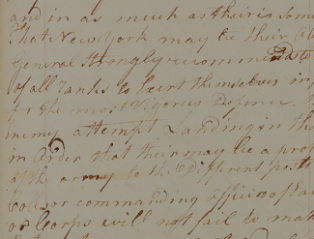 and in as much as their is Some
That New York may be their
General Strongly recommends
of all Ranks to Exert themselves in
for the most Vigorus defence,
enemy attempt Landing in the
in Order that their may be a pro
of the army to the Different posts
Col or commanding officer of Ea
or Corps will not fail to mak